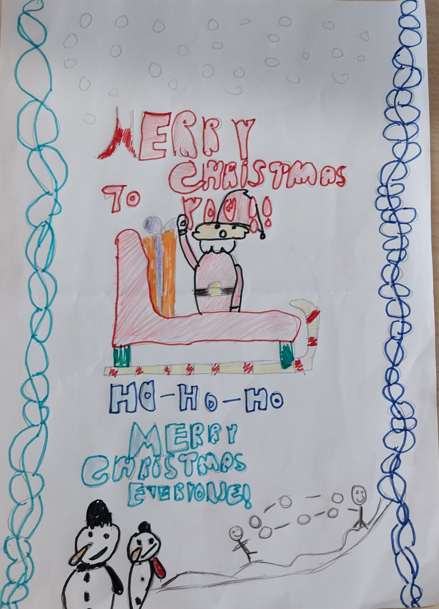 MERRY
CHRISTMAS
TO YOU!!
HO-HO-HO
MERRY
CHRISTMAS
EVERYONE!